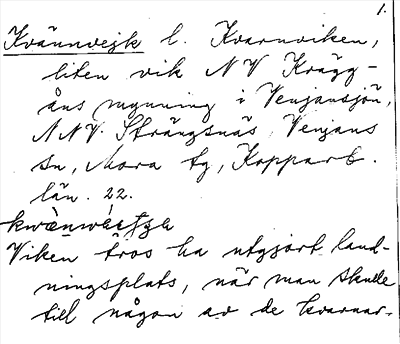 1.
Kvännvejk l. Kvarnviken,
liten vik NV Krägg-
åns mynning i Venjansjön,
NNV. Strängsnäs, Venjans
sn, Mora tg, Kopparb.
län. 22.
Viken tros ha utgjort land-
ningsplats, när man skulle
till någon av de kvarnar.